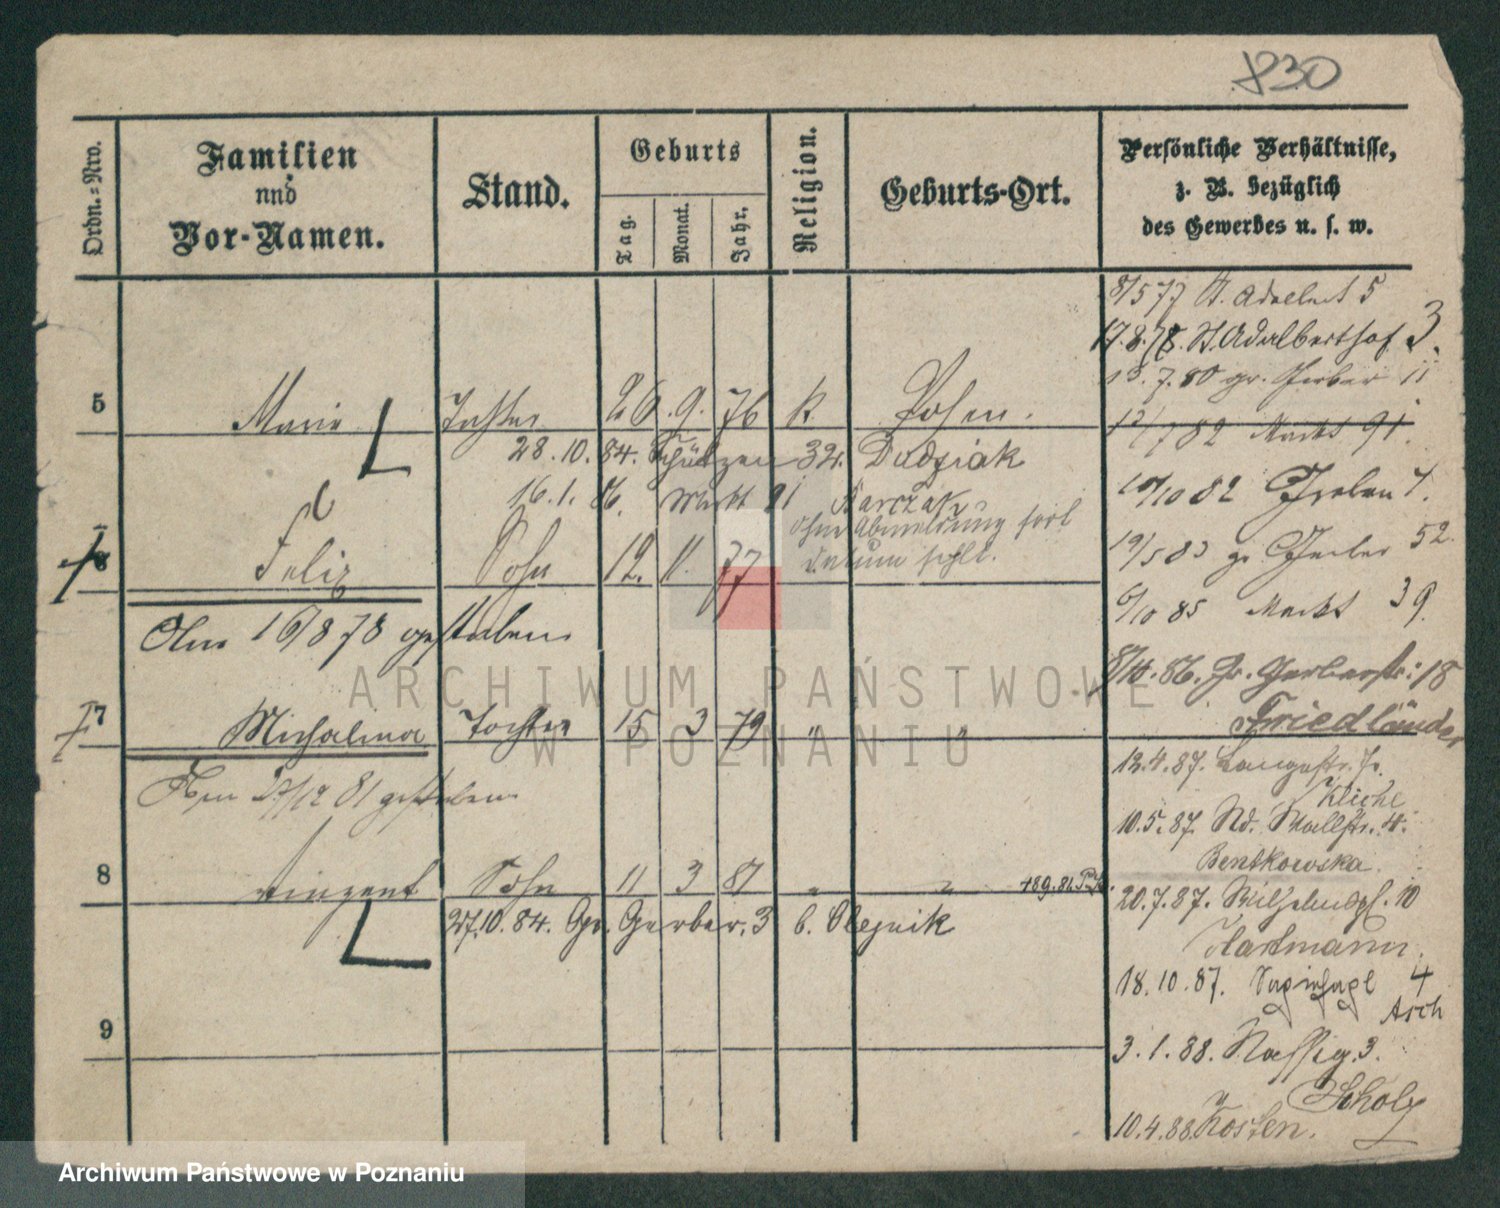 830
Ordn.=Nro.
Familien
und
Vor-Namen.
Stand.
Geburts
Tag.
Monat.
Jahr.
Religion.
Geburts-Ort.
Persönliche Verhältnisse,
z. B. bezüglich
des Gewerbes u. s. w.
8/5 77 St. Adalbert 5
17.8.78. St. Adalberthof 3.
13.7.80 gr. Gerber 11
5 Marie Tochter 26. 9. 76 k. Posen.
12/7 82 Markt 91.
28.10.84. Schützen 32. Dudziak
10/10 82 Graben 7.
16.1.86. Markt 91 Karczak
ohne Abmeldung fort
Datum fehlt.
6 Felix Sohn 12. 11. 77
19/5 83 gr. Gerber 52.
6/10 85 Markt 39.
Am 16/8 78 gestorben
8/10.86. Gr. Gerberstr: 18
Friedländer
7 Michalina Tochter 15 3 79 " "
12.4.87. Langestr. 7.
Am 27/12 81 gestorben
Kliche
10.5.87. Nd. Wallstr. 4.
Bentkowska.
8 Vinzent Sohn 11 3 81 " "
20.7.87. Wilhelmspl. 10
27.10.84. Gr. Gerber. 3 b. Olejnik
Hartmann.
18.10.87. Sapiehapl 4
Asch
9
3.1.88. 3.
Scholz
10.4.88 Kosten.
ARCHIWUM PAŃSTWOWE
W POZNANIU
Archiwum Państwowe w Poznaniu